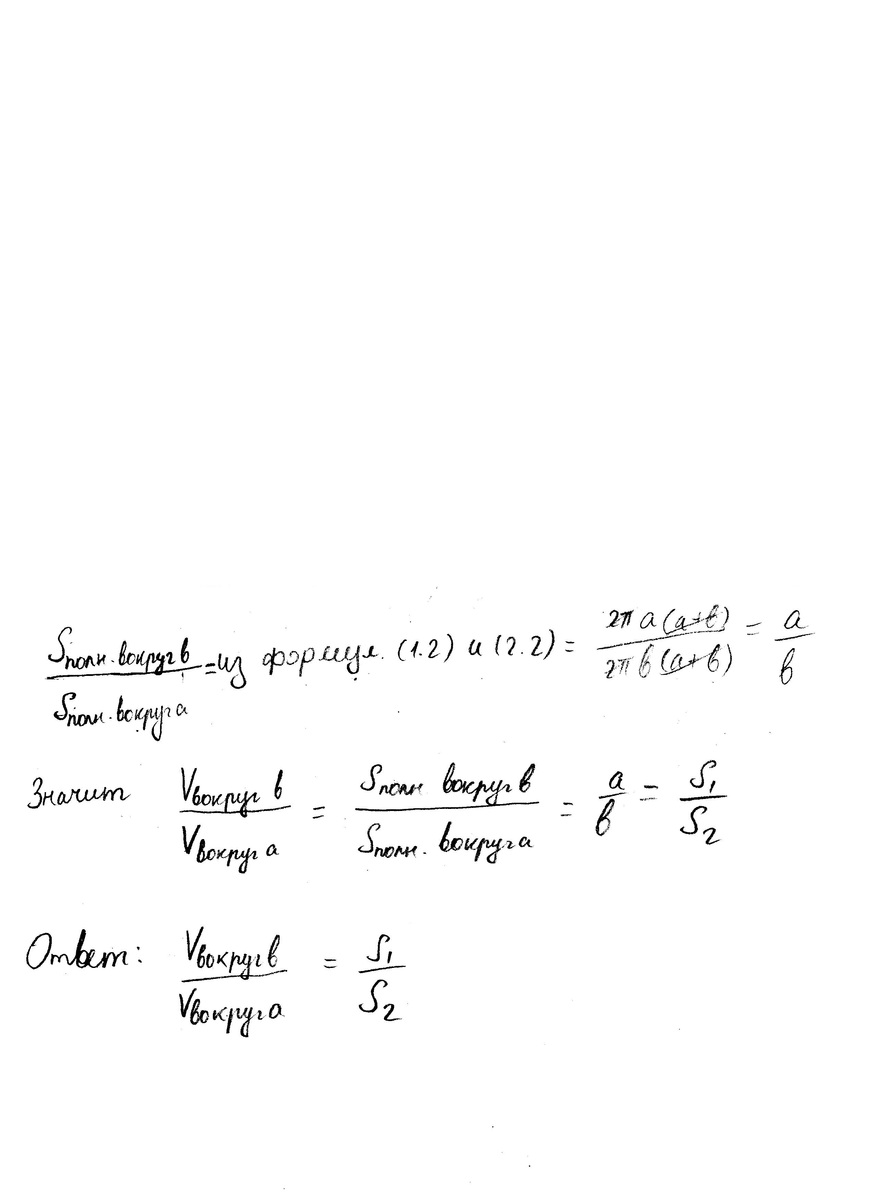 Sполн.вокруг в / Sполн.вокруг а = из формул. (1.2) и (2.2) = 2π а (а+в) / 2π в (а+в) = а / в
Значит Vвокруг в / Vвокруг а = Sполн вокруг в / Sполн. вокруг а = а / в = S₁ / S₂
Ответ: Vвокруг в / Vвокруг а = S₁ / S₂